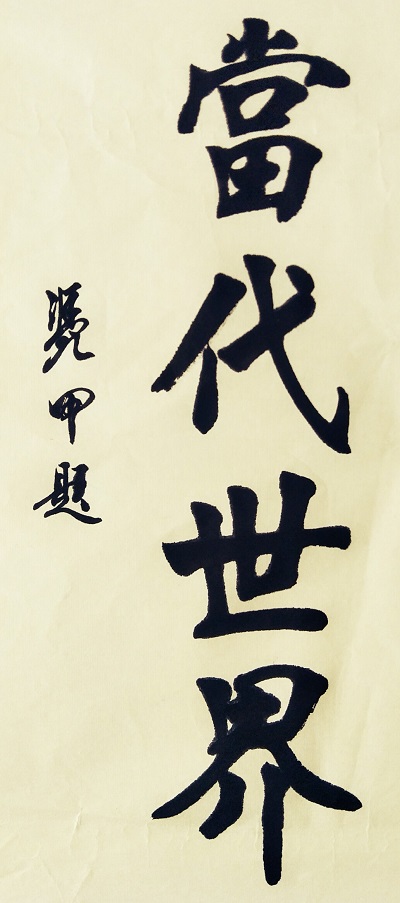 當代世界
甲題